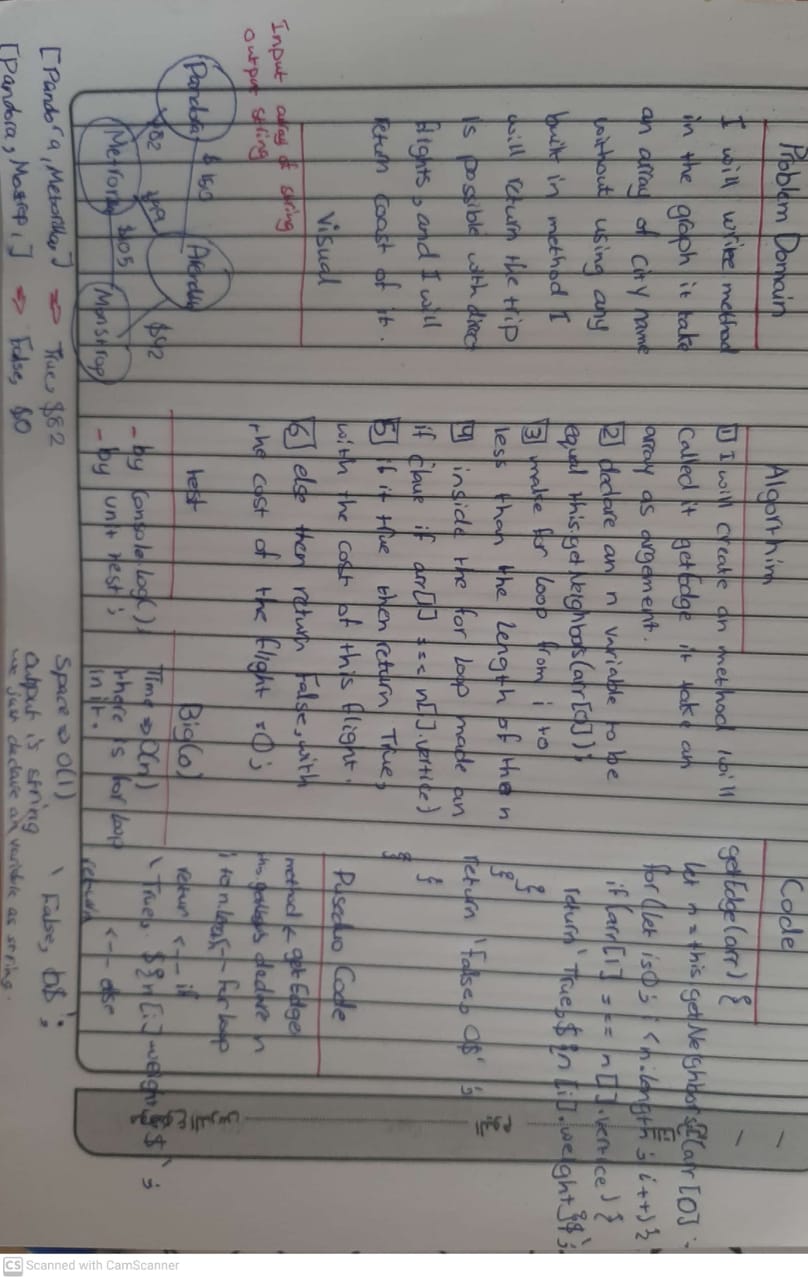 Problem Domain
I will write method
in the graph it take
an array of city name
without using any
built in method I
will return the trip
is possible with direct
flights, and I will
return coast of it.
Visual
Input array of string
output string
Pandora
$150
$82
Metroville
$99
$105
$42
Monstrop
[Pandora, Metroville] => True, $82
=> False, $0
Algorithim
1 I will create an method will
called it getEdge it take an
array as argement.
2 declare an n variable to be
equal this.getNeighbors(arr[0]);
3 make for loop from i to
less than the length of the n
4 inside the for loop made an
if claue if arr[1] === n[].vertice)
5 if it true then return True,
with the cost of this flight.
6 else then return False, with
the cost of the flight = 0;
test
- by console.log();
- by unit test;
Big(o)
Time => O(n)
there is for loop
in it.
Space => O(1)
output is string
we just declare an variable as string.
Code
getEdge(arr) {
let n = this.getNeighbors(arr[0]
for (let i=0; i < n.length; i++) {
if (arr[1] === n[].vertice) {
return `True, ${n[i].weight}$`;
}
}
return `False, 0$`;
}
}
Pusedvo Code
method <- getEdge
declare n
i to n.length -- for loop
retur <--- if
`True, ${n[i].weight}$`;
return <-- else
`False, 0$`;
CS Scanned with CamScanner